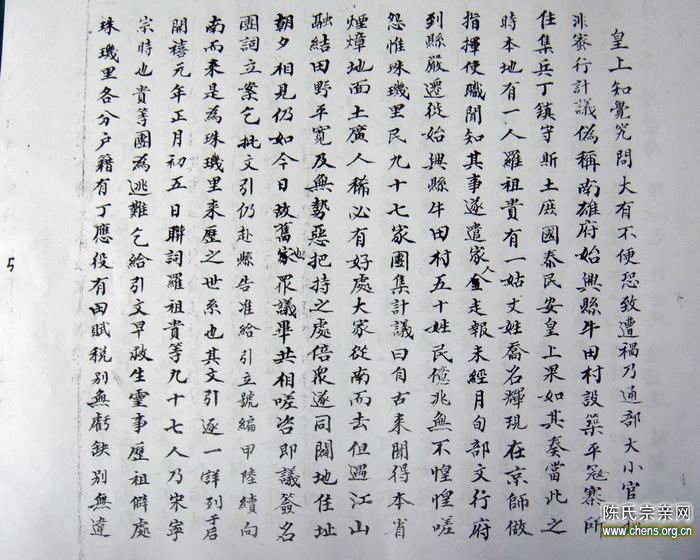 皇上知覺究問大有不便恐致遭禍乃通部大小官
非密行計議偽稱南雄府始興縣牛田村設築平寇寨所
住集兵丁鎮守斯土庶國泰民安皇上果如其奏當此之
時本地有一人羅祖貴有一姑丈姓喬名輝現在京師做
指揮使職聞知其事遂遣家人走報未經月旬部文行府
到縣嚴遷徙始興縣牛田村五十姓民億兆無不惶惶嗟
怨惟珠璣里民九十七家團集計議曰自古來聞得本省
煙瘴地面土廣人稀必有好處大家從南而去但遇江山
融結田野平寬及無勢惡把持之處倍眾遂同闢地住址
朝夕相見仍如今日故舊家也眾議畢共相嗟咨即議簽名
團詞立案乞批文引仍赴縣告准給引立號編甲陸續向
南而來是為珠璣里來歷之世系也其文引逐一詳列于后
開禧元年正月初五日聯詞羅祖貴等九十七人乃宋寧
宗時也貴等團為逃難乞給引文早救生靈事歷祖僻處
珠璣里各分户籍有丁應役有田賦稅別無虧缺別無違
5
陈氏宗亲网
www.chens.org